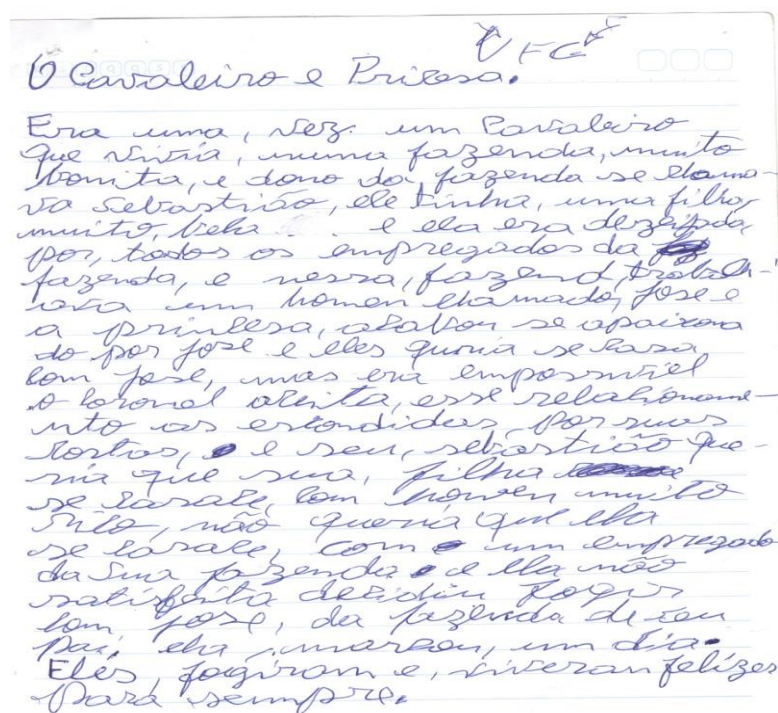 O Cavaleiro e Pricesa.
Era uma, vez. um Cavaleiro
que vivia, numa fazenda, muito
bonita, e dono da fazenda se chama-
va Sebastião, ele tinha, uma filha,
muito, bela e ela era dezejada
por, todos os empregados da
fazenda, e nessa, fazend, trabalh-
ava um homen chamado, jose e
a princesa, acabou se apaixona
do por jose e eles queria se casa
com jose, mas era empossivel
o coronel aceita, esse relacioname-
nto as escondidas, por suas
costas, e seu, sebastião que-
ria que sua, filha
se casace, com homen muito
rico, não queria que ela
se casace, com um empregado
da sua fazenda e ela não
satisfeita decidiu fogir
com jose, da fazenda de seu
pai, ela marcou, um dia.
Eles, fogiram e, viveran felizes
para sempre.